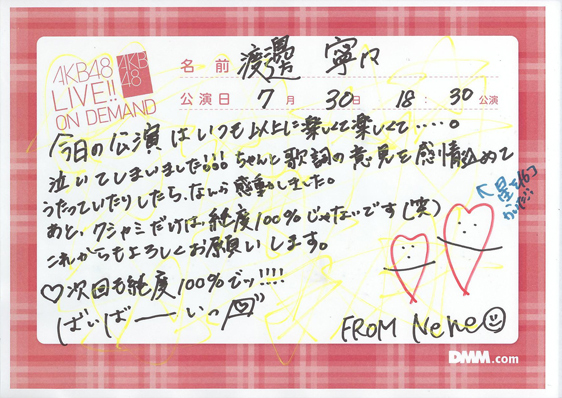 AKB48
LIVE!!
ON DEMAND
AKB
48
名 前 渡邊 寧々
公演日 7月 30日 18:30公演
今日の公演はいつも以上に楽しくて楽しくて.....。
泣いてしまいました!!!ちゃんと歌詞の意見を感情込めて
うたっていたりしたら、なんか感動しました。
あと、クシャミだけは、純度100%じゃないです(笑)
これからもよろしくお願いします。
♡次回も純度100%でッ!!!!
ばいばーーいっ
FROM Nene
DMM.com